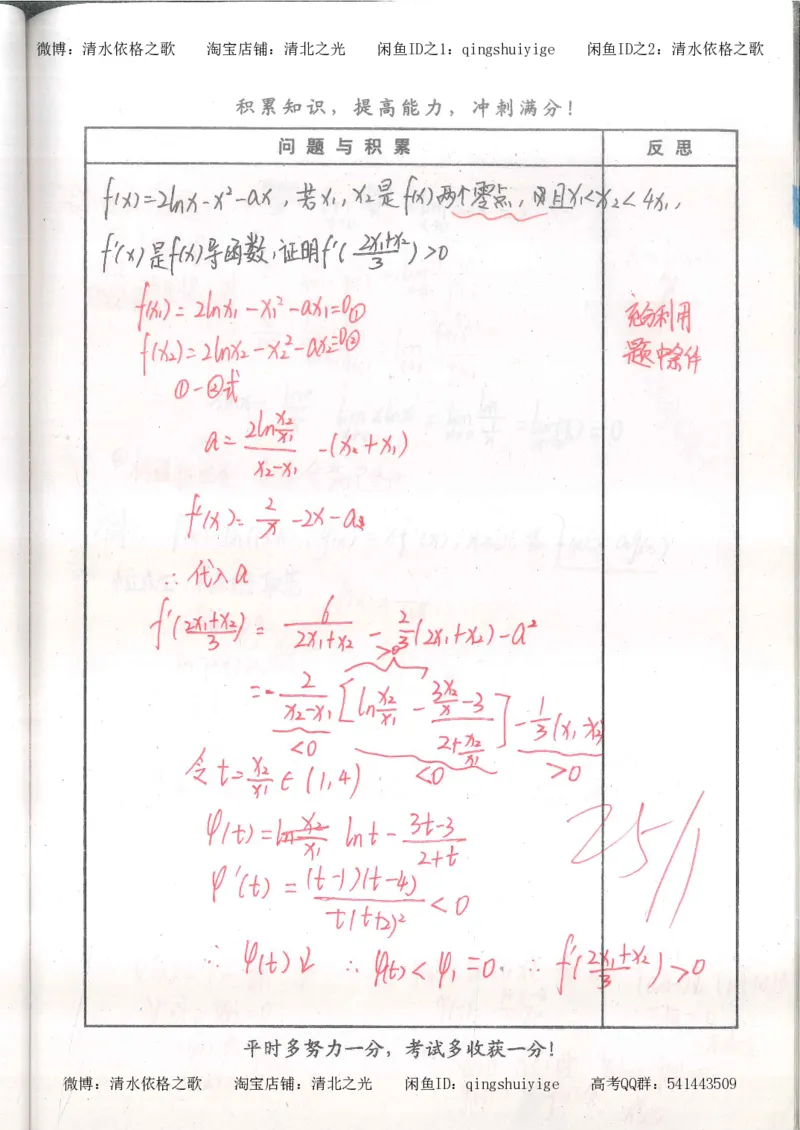 微博：清水依格之歌 淘宝店铺：清北之光 闲鱼ID之1：qingshuiyige 闲鱼ID之2：清水依格之歌
积累知识，提高能力，冲刺满分！
问题与积累 反思
f(x)=2lnx-x²-ax，若x₁，x₂是f(x)两个零点，且x₁<x₂<4x₁，
f'(x)是f(x)导函数，证明f'((2x₁+x₂)/3)>0
f(x₁)=2lnx₁-x₁²-ax₁=0①
f(x₂)=2lnx₂-x₂²-ax₂=0②
充分利用
题中条件
①-②式
a=(2ln(x₂/x₁))/(x₂-x₁)-(x₂+x₁)
f'(x)=2/x-2x-a
∴代入a
f'((2x₁+x₂)/3)=6/(2x₁+x₂)-2/3(2x₁+x₂)-a²
>0
=-2/(x₂-x₁)[ln(x₂/x₁)-(3x₂/x-3)/(2+x₂/x₁)]-1/3(x₁-x₂)
<0 <0 >0
令t=x₂/x₁∈(1,4)
φ(t)=lnt-(3t-3)/(2+t)
φ'(t)=((t-1)(t-4))/(t(t+2)²)<0
∴φ(t)↓ ∴φ(t)<φ₁=0 ∴f'((2x₁+x₂)/3)>0
平时多努力一分，考试多收获一分！
微博：清水依格之歌 淘宝店铺：清北之光 闲鱼ID：qingshuiyige 高考QQ群：541443509